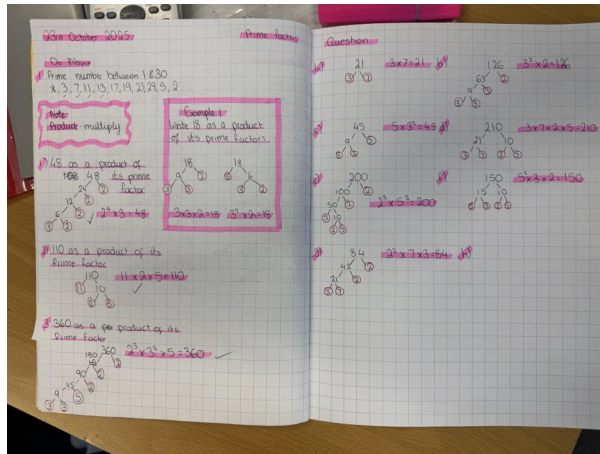 23rd October 2025
Prime factors
Do Now
1) Prime number between 1 & 30
2, 3, 7, 11, 13, 17, 19, 23, 29, 5, 2
Note
Product - multiply
Example 1
Write 18 as a product
of its prime factors
18
9 2
3 3
3x3x2=18
18
3 6
3 2
3²x2=18
1) 48 as a product of
its prime
factor
48
24 2
12 2
6 2
3 2
2⁴x3=48
2) 110 as a product of its
Prime factor
110
11 10
2 5
11x2x5=110
3) 360 as a product of its
Prime Factor
360
180 2
90 2
45 2
9 5
3 3
2³x3²x5=360
Question
a)
21
3 7
3x7=21
b)
126
63 2
9 7
3 3
c)
45
9 5
3 3
5x3²=45
d)
210
21 10
3 7 2 5
3x7x2x5=210
200
100 2
50 2
5 10
5 2
150
15 10
3 5 5 2
5²x3x2=150
84
42 2
21 2
3 7
2²x7x3=84
h)